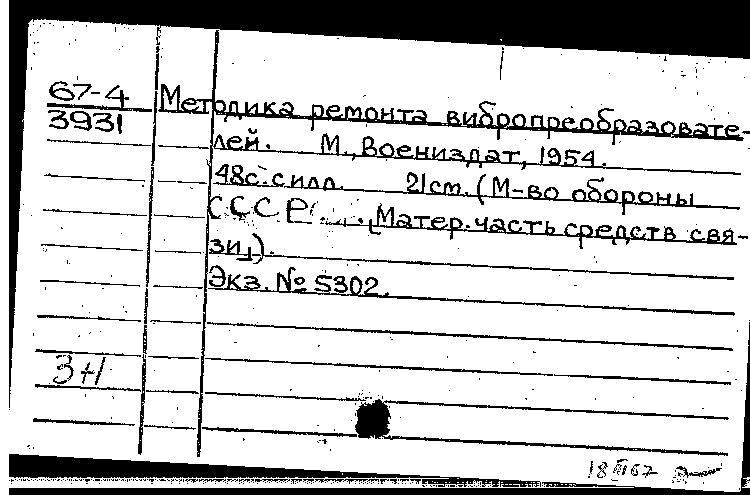 67-4 Методика ремонта вибропреобразовате-
3931
лей. М., Воениздат, 1954.
48с. с илл. 21см. (М-во обороны
СССР. [Матер. часть средств свя-
зи]).
Экз. № 5302.
3+1
18 III 67